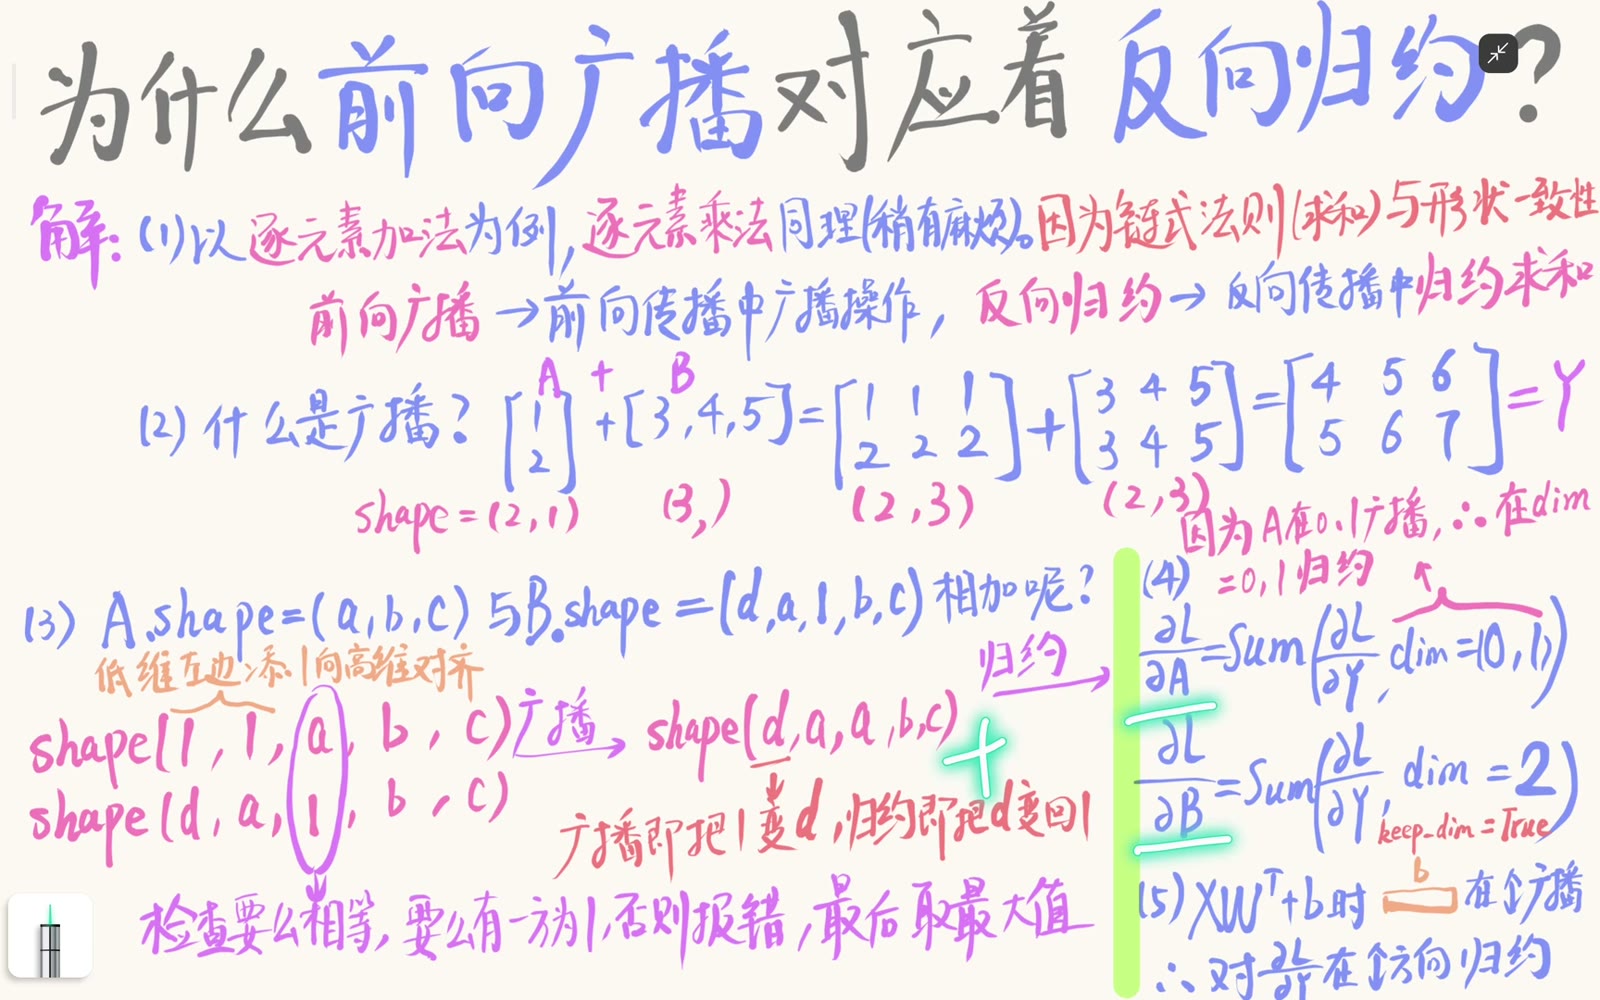 为什么前向广播对应着反向归约?
解: (1)以逐元素加法为例, 逐元素乘法同理(稍有麻烦)。因为链式法则(求和)与形状一致性
前向广播→前向传播中广播操作, 反向归约→反向传播中归约求和
A + B
(2) 什么是广播? [1 2] + [3,4,5] = [1 1 1 2 2 2] + [3 4 5 3 4 5] = [4 5 6 5 6 7] = Y
shape = (2,1) (3,) (2,3) (2,3)
(3) A.shape=(a,b,c) 与B.shape=(d,a,1,b,c)相加呢?
低维左边添1向高维对齐
shape(1, 1, a, b, c) 广播→ shape(d,a,a,b,c)
shape(d, a, 1, b, c)
广播即把1变d,归约即把d变回1
检查要么相等, 要么有一方为1,否则报错, 最后取最大值
归约→
因为A在0、1广播, ∴在dim
=0,1归约
(4)
∂L/∂A = Sum(∂L/∂Y, dim=(0,1))
+
∂L/∂B = Sum(∂L/∂Y, dim = 2)
keep-dim = True
b
(5) XWᵀ+b时 在↕广播
∴ 对∂L/∂Y在↕方向归约